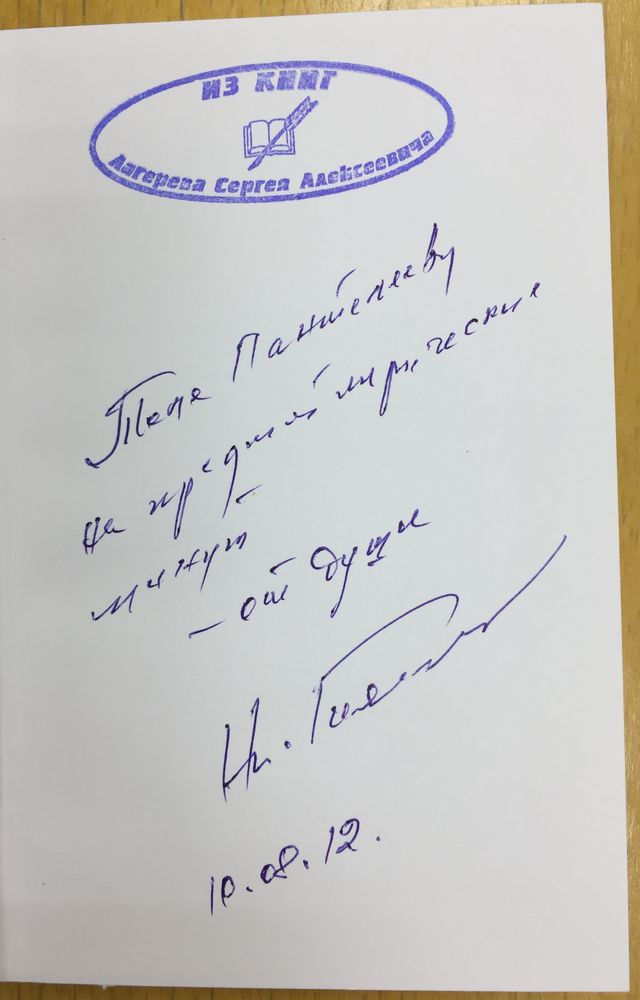 ИЗ КНИГ
Лагерева Сергея Алексеевича
Пантелееву
на предмет лирических
минут
– от души
10.08.12.